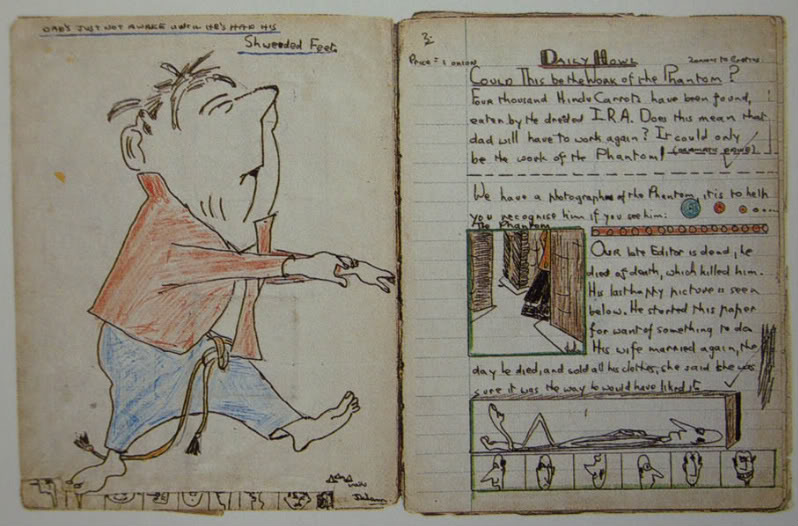 DAD'S JUST NOT AWAKE UNTIL HE'S HAD HIS
Shweeded Feet.
3
Price = 1 onion
DAILY HOWL
COULD This be the Work of the Phantom?
Four thousand Hindu Carrots have been found,
eaten by the dreded I.R.A. Does this mean that
dad will have to work again? It could only
be the work of the Phantom! (DRAMATIC PAUSE)
We have a photograph of the Phantom, it is to help
you recognise him if you see him:
The Phantom
OUR late Editor is dead, he
died of death, which killed him.
His last happy picture is seen
below. He started this paper
for want of something to do
His wife married again, the
day he died, and sold all his clothes, she said she was
sure it was the way he would have liked it.